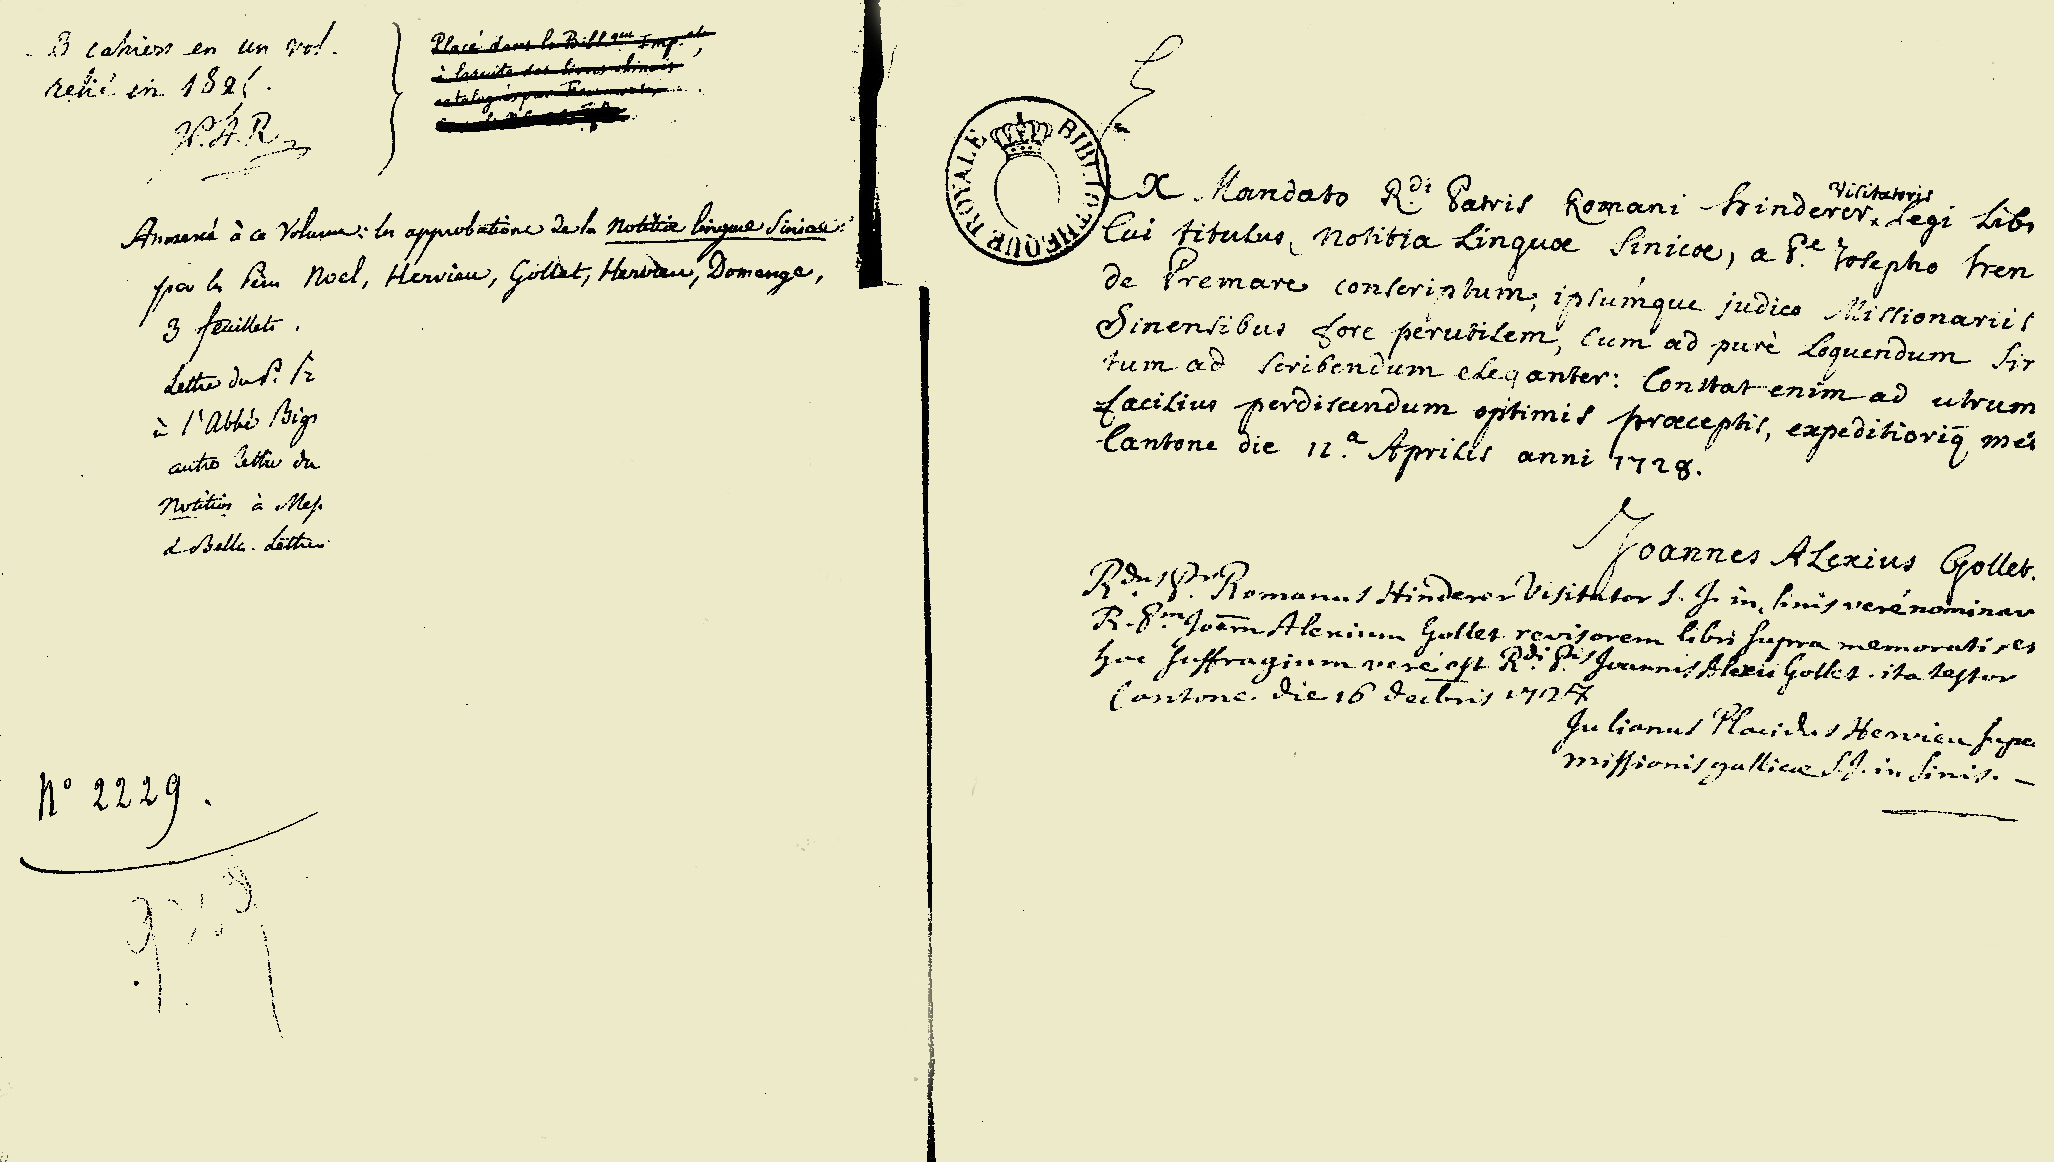 3 cahiers en un vol.
relié en 182
J.P.A.R
Placé dans la Bibl.que Imp.ale,
à la suite des livres chinois
catalogués par Fourmont
Annexé à ce Volume: les approbations de la Notitia linguae Sinicae:
par les Pères Noel, Hervieu, Gollet, Hervieu, Domenge,
3 feuillets.
Lettre du P. Pr
à l'Abbé Big
autre lettre du
Notitia à Mess
& Belles. Lettres
N° 2229.
BIBLIOTHEQUE ROYALE
Ex Mandato R.di Patris Romani Hinderer Visitatoris Legi Lib
Cui titulus, Notitia Linguæ Sinicæ, a P.e Josepho hen
de Premare conscriptum, ipsúmque judico Missionariis
Sinensibus fore perutilem, cum ad purè loquendum
tum ad scribendum eleganter: Constat enim ad utrum
facilius perdiscendum optimis præceptis, expeditioriq̄ me
Cantone die 12.a Aprilis anni 1728.
Joannes Alexius Gollet.
R.dus P.r Romanus Hinderer Visitator S. J. in sinis verè nominav
R. P.m Joām Alexium Gollet revisorem libri supra memorati et
hoc suffragium verè est R.di P.is Joannis Alexii Gollet. ita testor
Cantone. die 16 decēbris 1727
Julianus Placidus Hervieu supe
missionis gallicæ S.J. in sinis. —